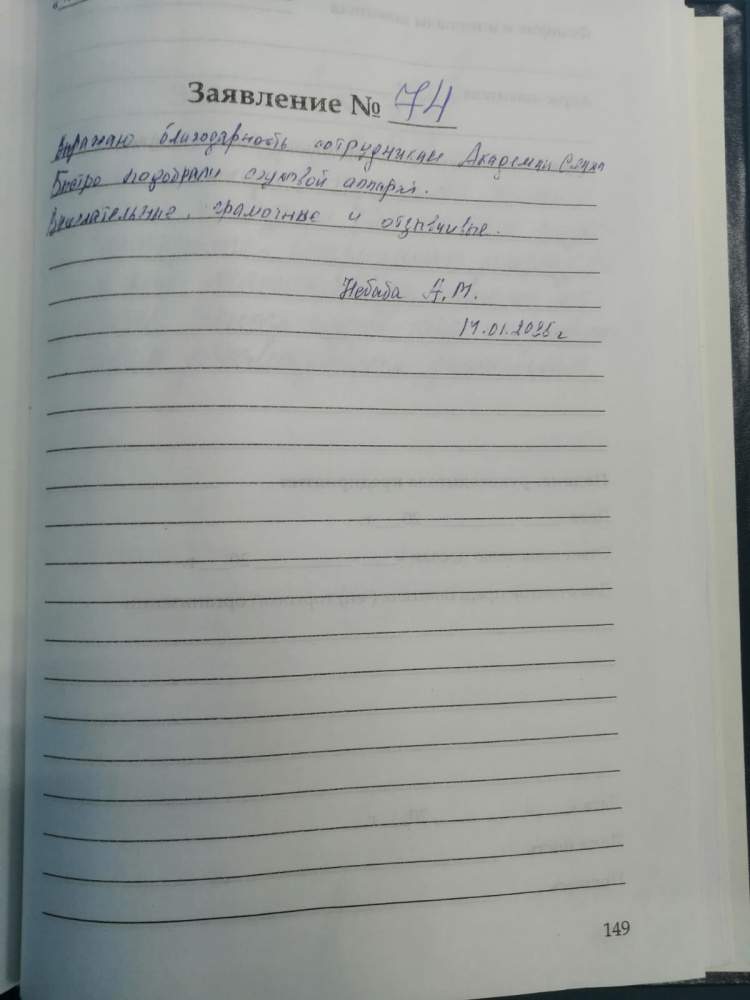 Заявление № 74
Выражаю благодарность сотрудникам Академии Слуха
Быстро подобрали слуховой аппарат.
Внимательные, грамотные и отзывчивые.
Небаба А.М.
17.01.2025г
149